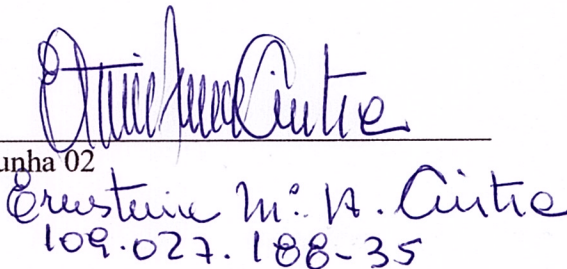 unha 02
Ernestina Mª A. Cintra
109.027.188-35